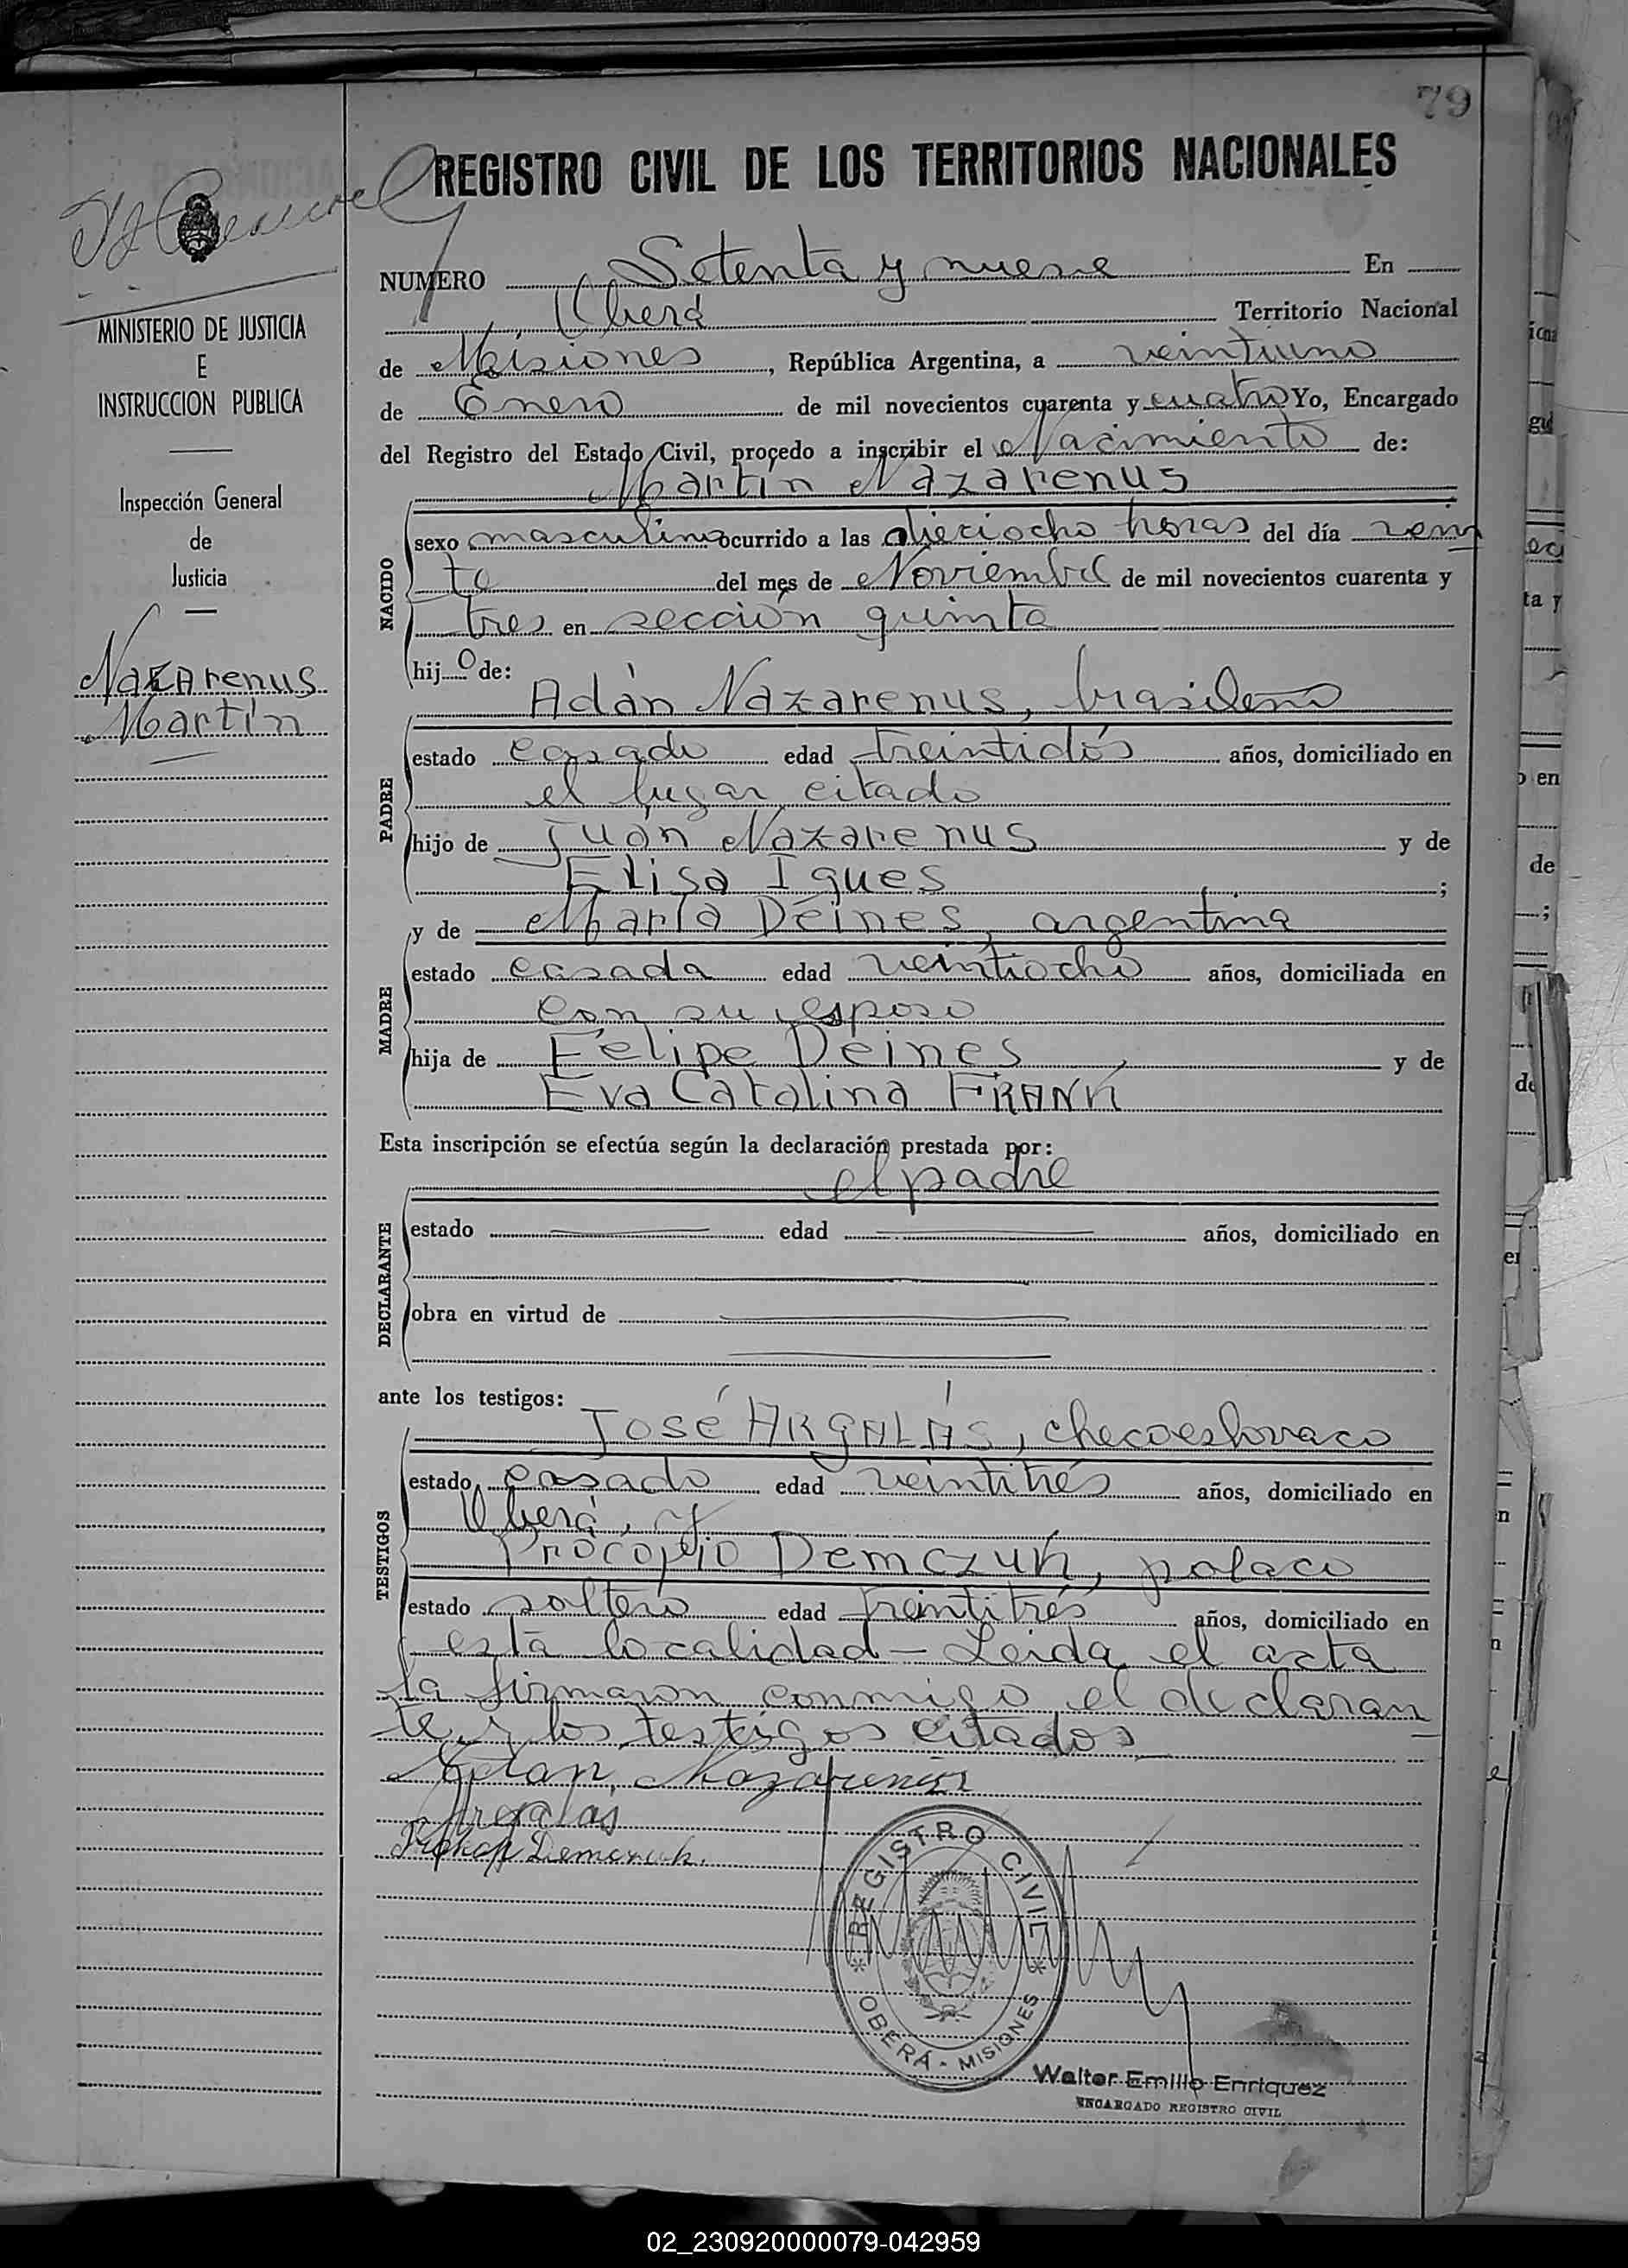 79
REGISTRO CIVIL DE LOS TERRITORIOS NACIONALES
NUMERO Setenta y nueve En
Oberá Territorio Nacional
de Misiones, República Argentina, a veintiuno
de Enero de mil novecientos cuarenta y cuatro Yo, Encargado
del Registro del Estado Civil, procedo a inscribir el Nacimiento de:
Martín Nazarenus
NACIDO
sexo masculino ocurrido a las dieciocho horas del día vein
te del mes de Noviembre de mil novecientos cuarenta y
tres en sección quinta
hijo de:
Adán Nazarenus, brasileño
PADRE
estado casado edad treintidós años, domiciliado en
el lugar citado
hijo de Juan Nazarenus y de
Elisa Igues ;
MADRE
y de María Deines, argentina
estado casada edad veintiocho años, domiciliada en
con su esposo
hija de Felipe Deines, y de
Eva Catalina FRANK
Esta inscripción se efectúa según la declaración prestada por:
el padre
DECLARANTE
estado edad años, domiciliado en
obra en virtud de
ante los testigos:
TESTIGOS
JOSÉ ARGALÁS, checoeslovaco
estado casado edad veintitrés años, domiciliado en
Oberá, y
Procopio Demczuk, polaco
estado soltero edad treintitrés años, domiciliado en
esta localidad - Leida el acta
la firmaron conmigo el declaran
te y los testigos citados
Adan Nazarenus
Argalás
Prokop Demczuk.
REGISTRO CIVIL
OBERÁ - MISIONES
Walter Emilio Enriquez
ENCARGADO REGISTRO CIVIL
MINISTERIO DE JUSTICIA
E
INSTRUCCION PUBLICA
Inspección General
de
Justicia
Nazarenus
Martín
02_230920000079-042959